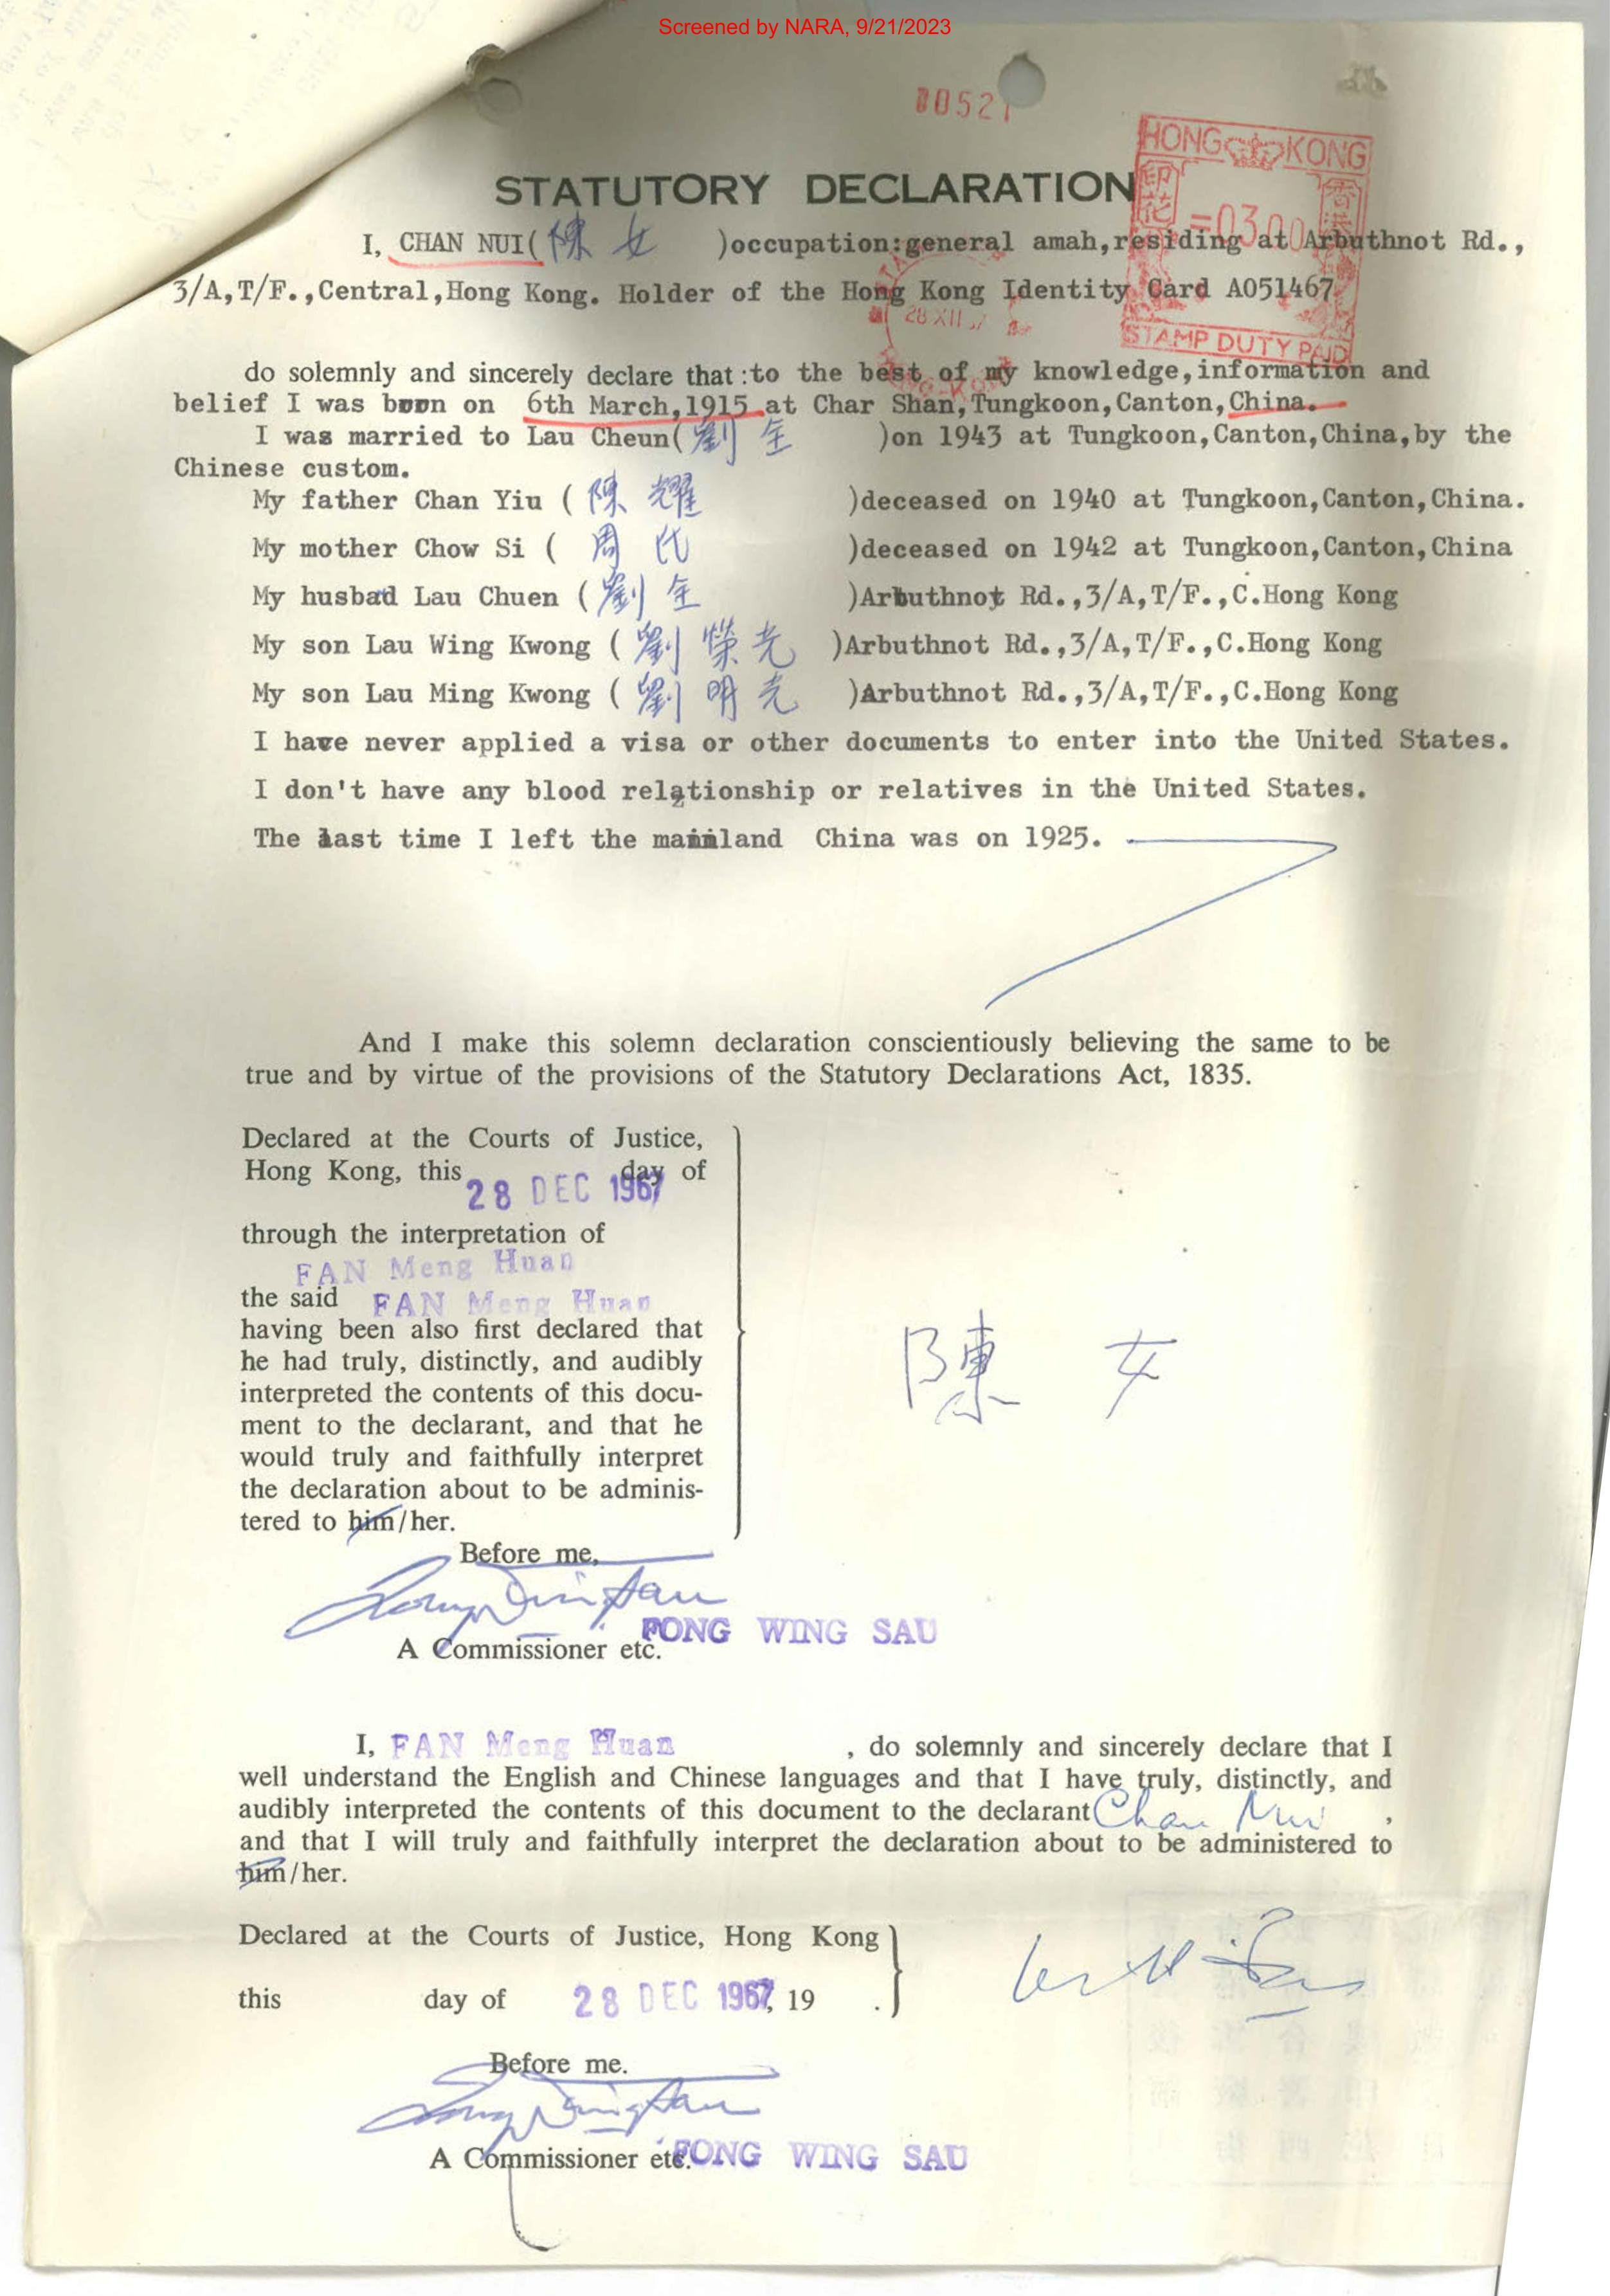 Screened by NARA, 9/21/2023
00521
HONG KONG
印花 香港
=03.00
STAMP DUTY PAID
28 XII
STATUTORY DECLARATION
I, CHAN NUI(陳 女 )occupation:general amah,residing at Arbuthnot Rd.,
3/A,T/F.,Central,Hong Kong. Holder of the Hong Kong Identity Card A051467
do solemnly and sincerely declare that :to the best of my knowledge,information and
belief I was born on 6th March,1915 at Char Shan,Tungkoon,Canton,China.
I was married to Lau Cheun(劉 全 )on 1943 at Tungkoon,Canton,China,by the
Chinese custom.
My father Chan Yiu (陳 耀 )deceased on 1940 at Tungkoon,Canton,China.
My mother Chow Si ( 周 氏 )deceased on 1942 at Tungkoon,Canton,China
My husbad Lau Chuen (劉 全 )Arbuthnot Rd.,3/A,T/F.,C.Hong Kong
My son Lau Wing Kwong (劉 榮 光 )Arbuthnot Rd.,3/A,T/F.,C.Hong Kong
My son Lau Ming Kwong (劉 明 光 )Arbuthnot Rd.,3/A,T/F.,C.Hong Kong
I have never applied a visa or other documents to enter into the United States.
I don't have any blood relationship or relatives in the United States.
The last time I left the mainland China was on 1925.
And I make this solemn declaration conscientiously believing the same to be
true and by virtue of the provisions of the Statutory Declarations Act, 1835.
Declared at the Courts of Justice,
Hong Kong, this 28 DEC 1967 day of
through the interpretation of
FAN Meng Huan
the said FAN Meng Huan
having been also first declared that
he had truly, distinctly, and audibly
interpreted the contents of this docu-
ment to the declarant, and that he
would truly and faithfully interpret
the declaration about to be adminis-
tered to him/her.
陳 女
Before me,
A Commissioner etc. FONG WING SAU
I, FAN Meng Huan , do solemnly and sincerely declare that I
well understand the English and Chinese languages and that I have truly, distinctly, and
audibly interpreted the contents of this document to the declarant Chan Nui ,
and that I will truly and faithfully interpret the declaration about to be administered to
him/her.
Declared at the Courts of Justice, Hong Kong
this day of 28 DEC 1967, 19 .
Before me.
A Commissioner etc. FONG WING SAU